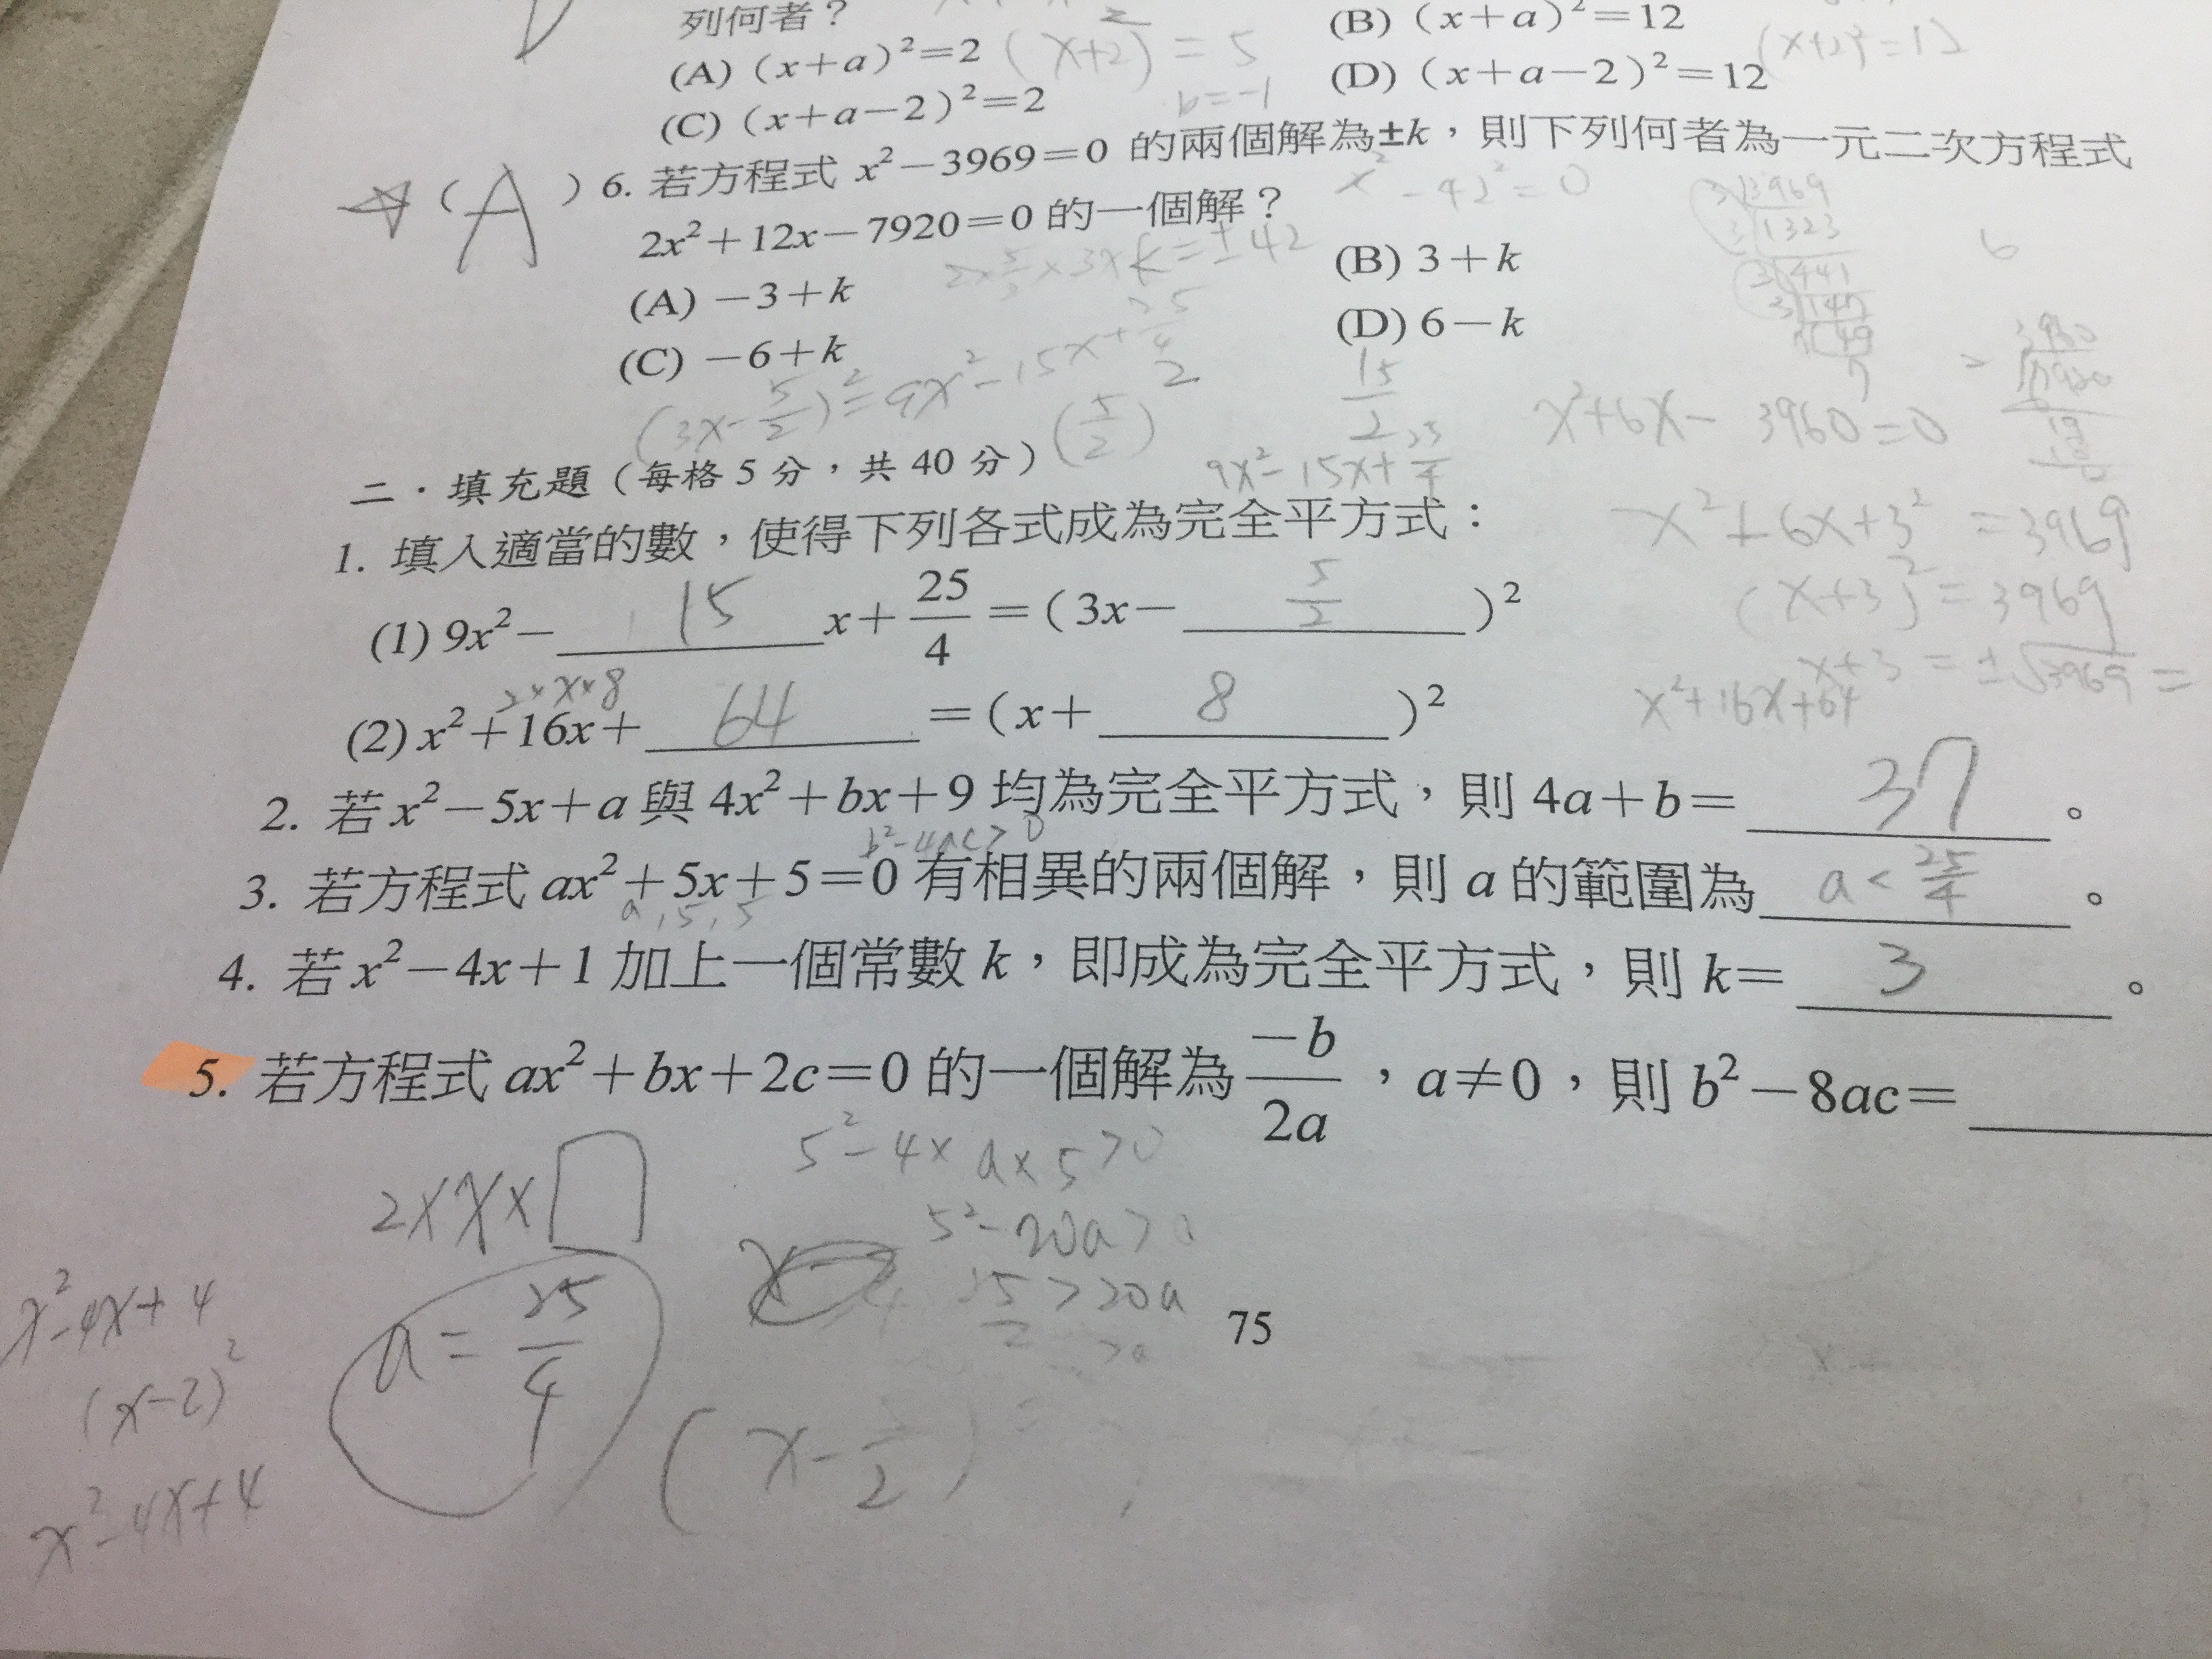 列何者？
(A) (x+a)²=2
(B) (x+a)²=12
(x+2) = 5
(x+2)² = 12
(C) (x+a-2)²=2
(D) (x+a-2)²=12
b=-1
(A) 6. 若方程式 x²-3969=0 的兩個解為±k，則下列何者為一元二次方程式
2x²+12x-7920=0 的一個解？
(A) -3+k
(B) 3+k
k=±42
(C) -6+k
(D) 6-k
(3x-5/2)²=9x²-15x+25/4
(5/2)²
15/2
x²+6x-3960=0
二．填充題（每格 5 分，共 40 分）
9x²-15x+25/4
x²+6x+3²=3969
1. 填入適當的數，使得下列各式成為完全平方式：
(x+3)²=3969
(1) 9x²- 15 x+25/4=(3x- 5/2 )²
x+3=±√3969=
2×x×8
x²+16x+64
(2) x²+16x+ 64 =(x+ 8 )²
2. 若 x²-5x+a 與 4x²+bx+9 均為完全平方式，則 4a+b= 37 。
b²-4ac>0
3. 若方程式 ax²+5x+5=0 有相異的兩個解，則 a 的範圍為 a<25/4 。
a,5,5
4. 若 x²-4x+1 加上一個常數 k，即成為完全平方式，則 k= 3 。
5. 若方程式 ax²+bx+2c=0 的一個解為 -b/2a，a≠0，則 b²-8ac=
5²-4×a×5>0
2×x×□
5²-20a>0
x²-4x+4
a=25/4
>20a
75
(x-2)²
x²-4x+4